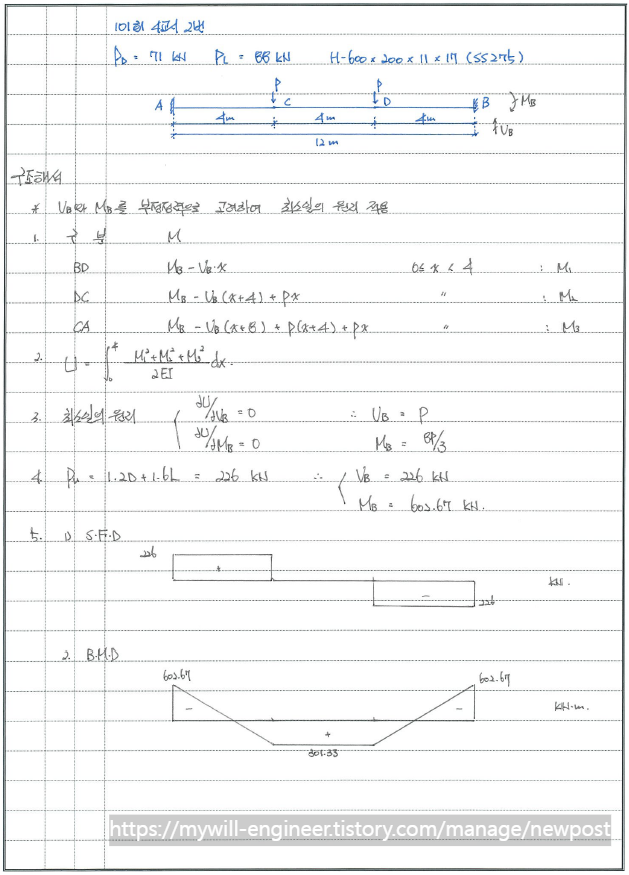 101회 4교시 2번
P_D = 71 kN P_L = 88 kN H-600×200×11×17 (SS275)
P P
A C D B M_B
4m 4m 4m V_B
12m
구조해석
* V_B와 M_B를 부정정력으로 고려하여 최소일의 원리 적용
1. 구 분 M
BD M_B - V_B·x 0≤x<4 : M₁
DC M_B - V_B(x+4) + Px 〃 : M₂
CA M_B - V_B(x+8) + P(x+4) + Px 〃 : M₃
2. U = ∫₀⁴ (M₁²+M₂²+M₃²)/2EI dx.
3. 최소일의 원리 ∂U/∂V_B = 0 ∴ V_B = P
∂U/∂M_B = 0 M_B = 8P/3
4. P_u = 1.2D+1.6L = 226 kN ∴ V_B = 226 kN
M_B = 602.67 kN.
5. 1) S.F.D
226
+ kN.
- 226
2. B.M.D
602.67 602.67
- - kN·m.
+
301.33
https://mywill-engineer.tistory.com/manage/newpost